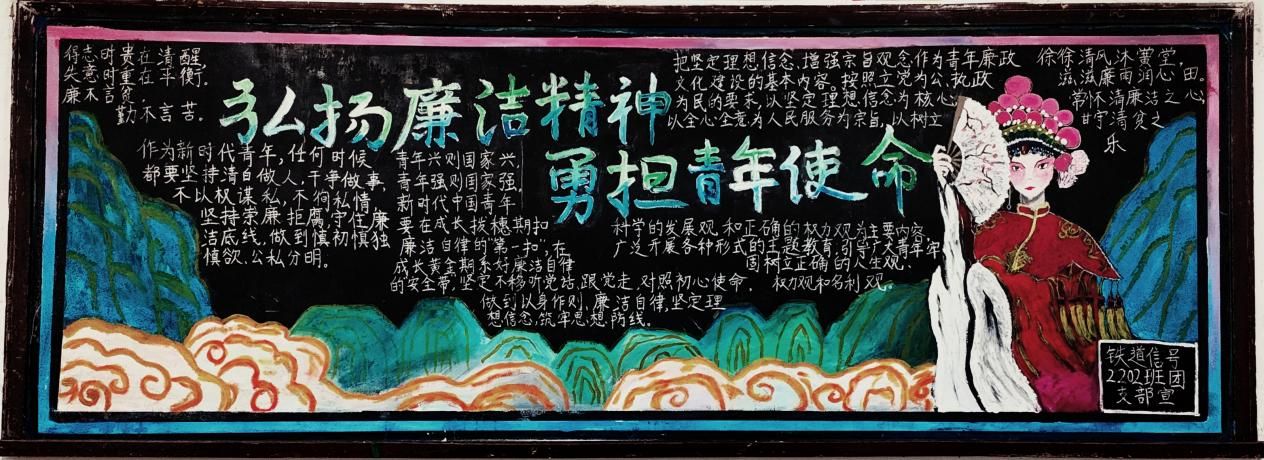 得志时贵在清醒,
失意时重在平衡.
廉不言贫
勤不言苦.
弘扬廉洁精神
勇担青年使命
作为新时代青年,任何时候
都要坚持清白做人,干净做事,
不以权谋私,不徇私情,
坚持崇廉拒腐,守住廉
洁底线,做到慎初慎独
慎欲.公私分明。
青年兴则国家兴.
青年强则国家强.
新时代中国青年
要在成长拔穗期扣
廉洁自律的“第一扣”,在
成长黄金期系好廉洁自律
的安全带,坚定不移听党话,跟党走,对照初心使命,
做到以身作则,廉洁自律,坚定理
想信念,筑牢思想防线。
把坚定理想信念,增强宗旨观念作为青年廉政
文化建设的基本内容。按照立党为公,执政
为民的要求,以坚定理想信念为核心
以全心全意为人民服务为宗旨,以树立
科学的发展观和正确的权力观为主要内容
广泛开展各种形式的主题教育,引导广大青年牢
固树立正确的人生观、
权力观和名利观。
徐徐清风沐黉堂,
滋滋廉雨润心田。
常怀清廉洁之心
甘守清贫之
乐
铁道信号
2202班团
支部宣